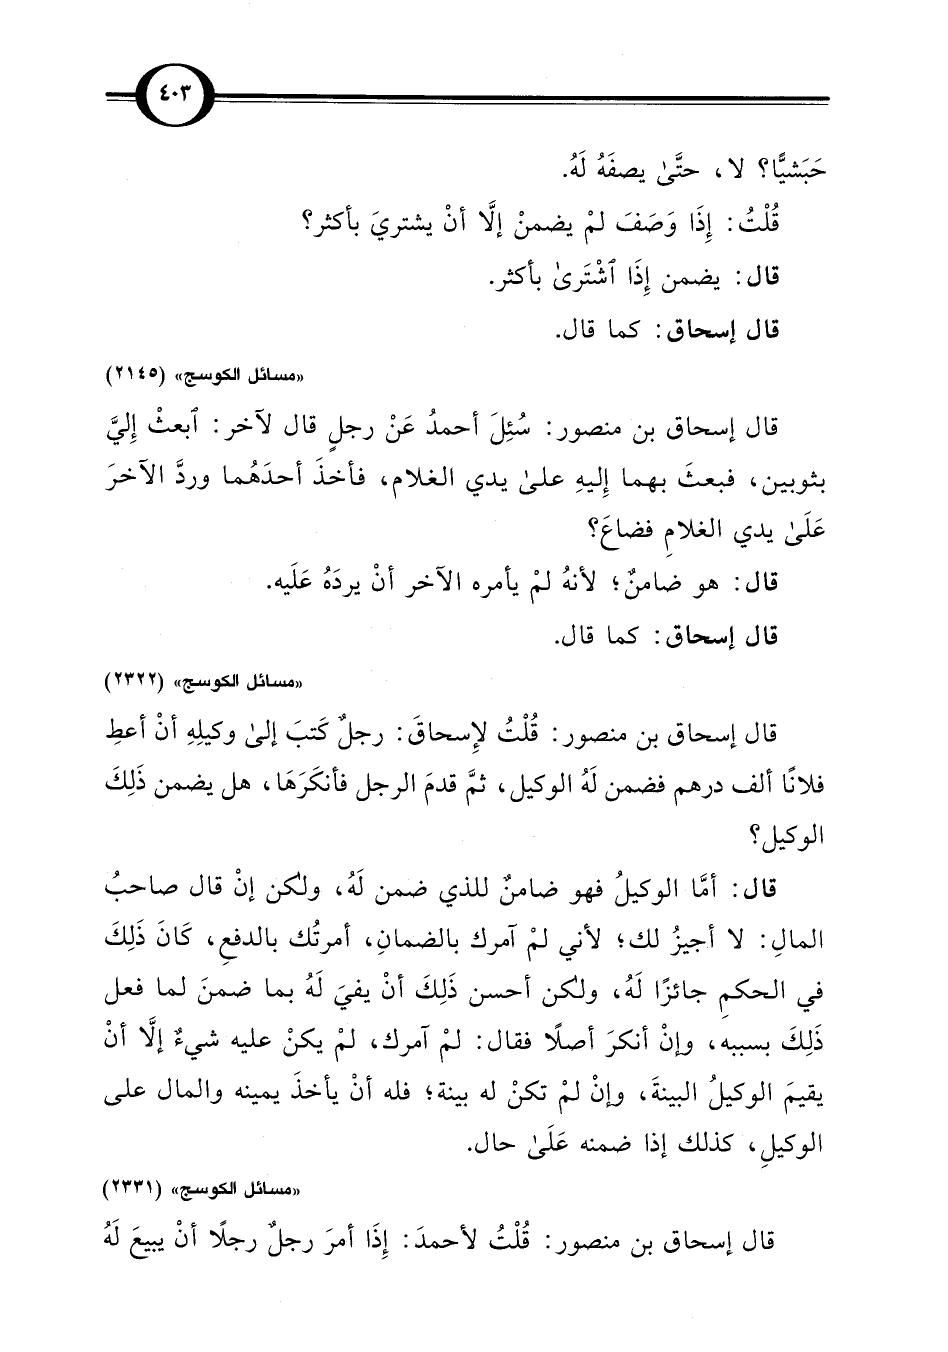 ٤٠٣
حَبَشيًّا؟ لا، حتَّىٰ يصفَهُ لَهُ.
قُلْتُ: إِذَا وَصَفَ لمْ يضمنْ إلَّا أنْ يشتريَ بأكثر؟
قال: يضمن إِذَا ٱشْتَرىٰ بأكثر.
قال إسحاق: كما قال.
«مسائل الكوسج» (٢١٤٥)
قال إسحاق بن منصور: سُئِلَ أحمدُ عَنْ رجلٍ قال لآخر: ٱبعثْ إِليَّ
بثوبين، فبعثَ بهما إِليهِ علىٰ يدي الغلام، فأخذَ أحدَهُما وردَّ الآخرَ
عَلَىٰ يدي الغلامِ فضاعَ؟
قال: هو ضامنٌ؛ لأنهُ لمْ يأمره الآخر أنْ يردَهُ عَلَيه.
قال إسحاق: كما قال.
«مسائل الكوسج» (٢٣٢٢)
قال إسحاق بن منصور: قُلْتُ لإسحاقَ: رجلٌ كَتبَ إلىٰ وكيلِهِ أنْ أعطِ
فلانًا ألف درهم فضمن لَهُ الوكيل، ثمَّ قدمَ الرجل فأنكَرَهَا، هل يضمن ذَلِكَ
الوكيل؟
قال: أمَّا الوكيلُ فهو ضامنٌ للذي ضمن لَهُ، ولكن إنْ قال صاحبُ
المالِ: لا أجيزُ لك؛ لأني لمْ آمرك بالضمانِ، أمرتُك بالدفعِ، كَانَ ذَلِكَ
في الحكمِ جائزًا لَهُ، ولكن أحسن ذَلِكَ أنْ يفيَ لَهُ بما ضمنَ لما فعل
ذَلِكَ بسببه، وإنْ أنكرَ أصلًا فقال: لمْ آمرك، لمْ يكنْ عليه شيءٌ إلَّا أنْ
يقيمَ الوكيلُ البينةَ، وإنْ لمْ تكنْ له بينة؛ فله أنْ يأخذَ يمينه والمال على
الوكيلِ، كذلك إذا ضمنه عَلَىٰ حال.
«مسائل الكوسج» (٢٣٣١)
قال إسحاق بن منصور: قُلْتُ لأحمدَ: إِذَا أمرَ رجلٌ رجلًا أنْ يبيعَ لَهُ